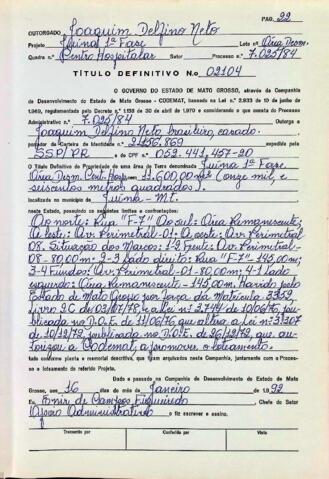 PAG. 22
OUTORGADO Joaquim Delfino Neto
Projeto Juina 1ª Fase Lote n.º Área Desm.
Quadra n.º Centro Hospitalar Setor Processo n.º 7.025/84
TÍTULO DEFINITIVO N.o 02104
O GOVERNO DO ESTADO DE MATO GROSSO, através da Companhia
de Desenvolvimento do Estado de Mato Grosso - CODEMAT, com base na Lei n.º 2.933 de 10 de junho de
1.969, regulamentada pelo Decreto n.º 1.153 de 30 de abril de 1970 e considerando o que consta do Processo
Administrativo n.º 7.025/84 Outorga a
Joaquim Delfino Neto brasileiro, casado.
portador da Carteira de Identidade n.º 2.456.869 expedida pela
SSP/PR e do CPF n.º 052.441.457-20
o Título Definitivo de Propriedade de uma área de Terra denominada Juina 1ª Fase,
Área Desm. Cent. Hosp. 11.600,00 m² (onze mil, e
seiscentos metros quadrados).
localizada no município de Juina - Mt.
neste Estado, possuindo os seguintes limites e confrontações:
Ao norte: Rua "F-7" Ao sul: Área Remanescente;
A leste: Av. Perimetral-01. A oeste: Av. Perimetral
08. Situação dos Marcos: 1-2 Frente: Av. Perimetral-
08-80,00m. 2-3 Lado direito: Rua "F-7" 145,00m;
3-4 Fundos: Av. Perimetral-01-80,00m; 4-1 lado
esquerdo: Área Remanescente-145,00m. Havido pelo
Estado de Mato Grosso por força da Matrícula 3352,
livro 2C de 03/07/78 e a lei n.º 3.744 de 10/06/76, pu-
blicada no D.O.E. de 11/06/76 que altera a lei n.º 3.307
de 10/12/72, publicada no D.O.E. de 26/12/72, que au-
torizou a Codemat, a promover o loteamento.
tudo conforme planta e memorial descritivo, que ficam arquivados nesta Companhia, juntamente com o Proces-
so e loteamento do referido Projeto.
Dado e passado na Companhia de Desenvolvimento do Estado de Mato
Grosso, em 16 dias do mês de Janeiro de 1.992
Eu, Enir de Campos Figueiredo Chefe do Setor
Apoio Administrativo o fiz escrever e assino.
Transcrito por Conferido por Visto